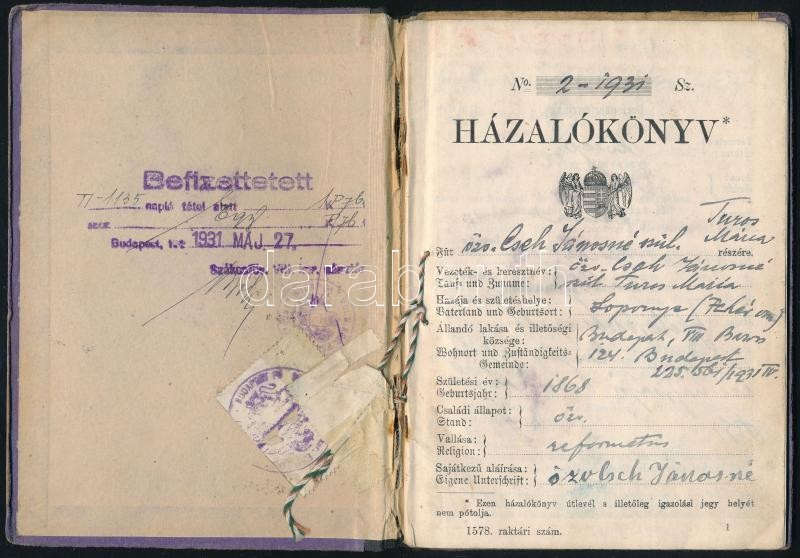 Befizettetett
II-1135 napló tétel alatt
Budapest, 1931 MÁJ. 27.
BUDAPEST
No. 2-1931 Sz.
HÁZALÓKÖNYV*
Turos
Für özv. Cseh Jánosné szül. Mária részére.
Vezeték- és keresztnév: özv. Cseh Jánosné
Tauf- und Zuname: szül Turos Mária
Hazája és születéshelye:
Vaterland und Geburtsort: Soponya (Fehér vm)
Állandó lakása és illetőségi
községe: Budapest, VIII
Wohnort und Zuständigkeits-
Gemeinde: 124. Budapest
1931 IV.
Születési év: 1868
Geburtsjahr:
Családi állapot: özv.
Stand:
Vallása: reformatus
Religion:
Sajátkezű aláírása: özv Cseh Jánosné
Eigene Unterschrift:
* Ezen házalókönyv útlevél s illetőleg igazolási jegy helyét
nem pótolja.
1578. raktári szám.
1
darabanth.com